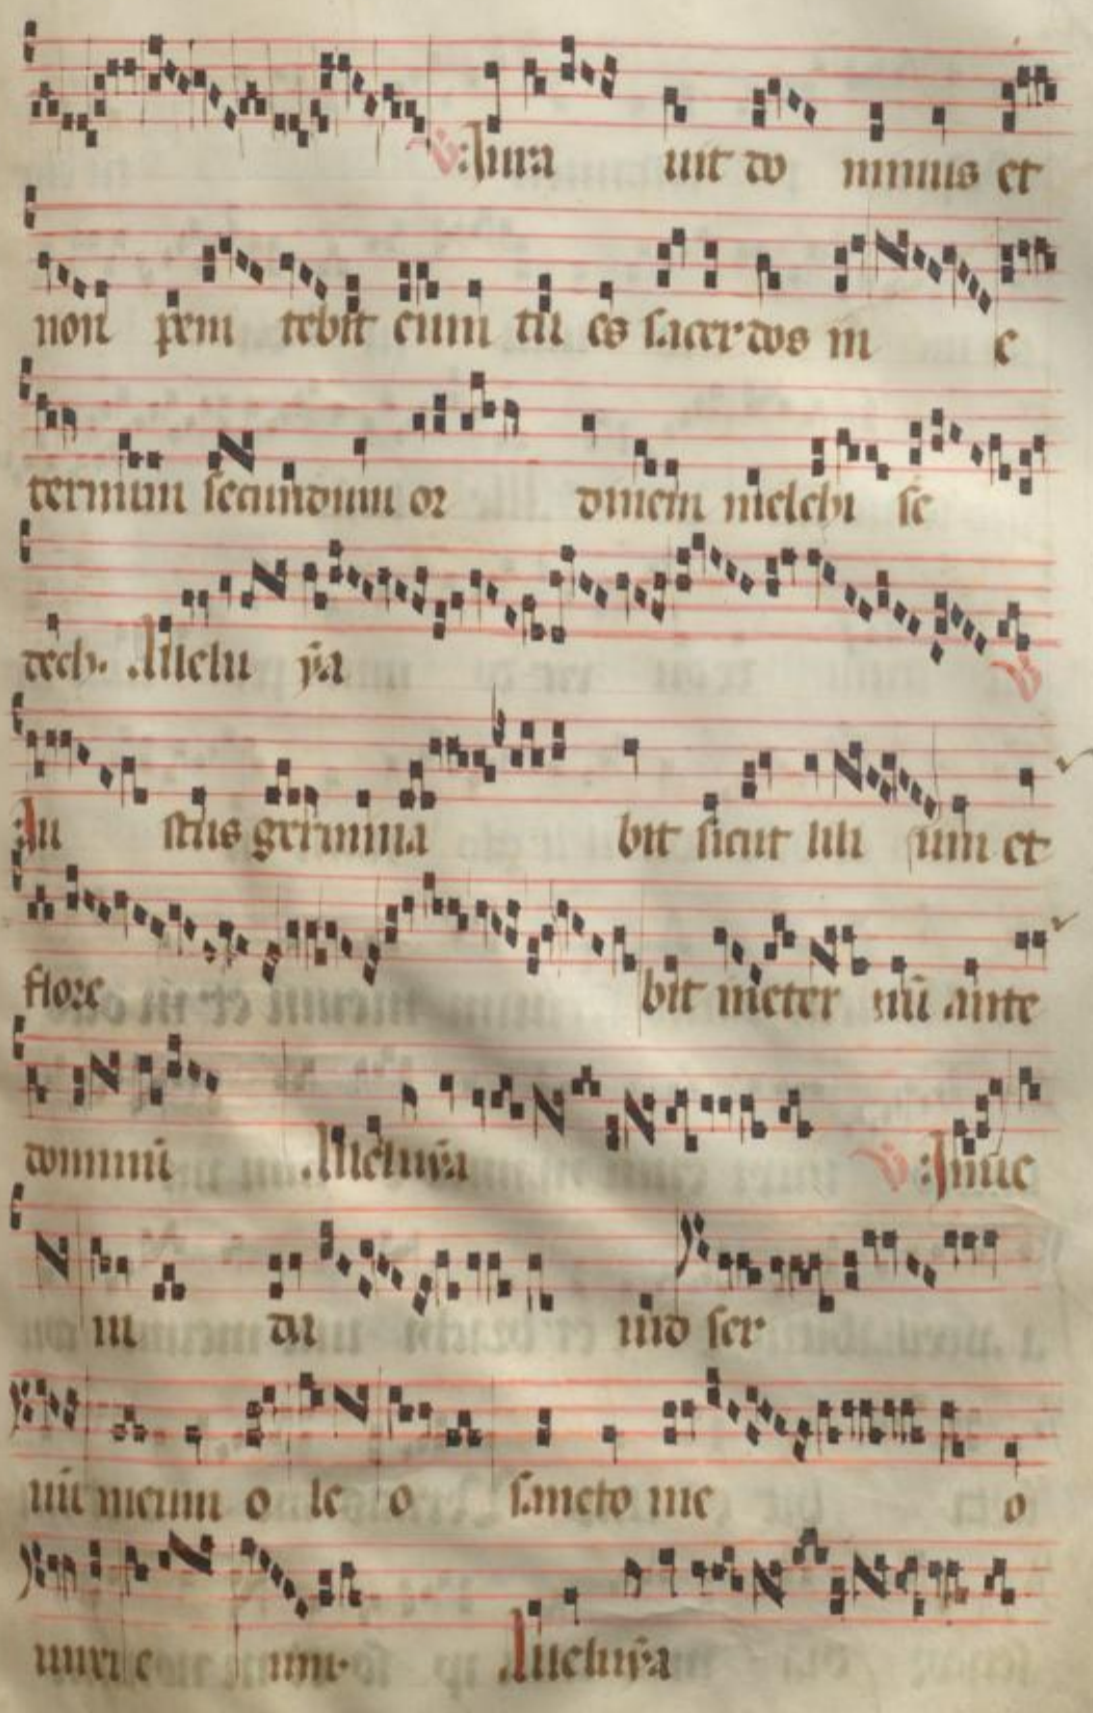 ℣. Iura uit do minus et
non peni tebit eum tu es sacerdos in e
ternum secundum or dinem melchi se
dech. Allelu ya ℣
Iu stus germina bit sicut lili um et
flore bit in eter nū ante
dominū Alleluya ℣. Inue
ni da uid ser
uū meum o le o sancto me o
unxi e um. Alleluya